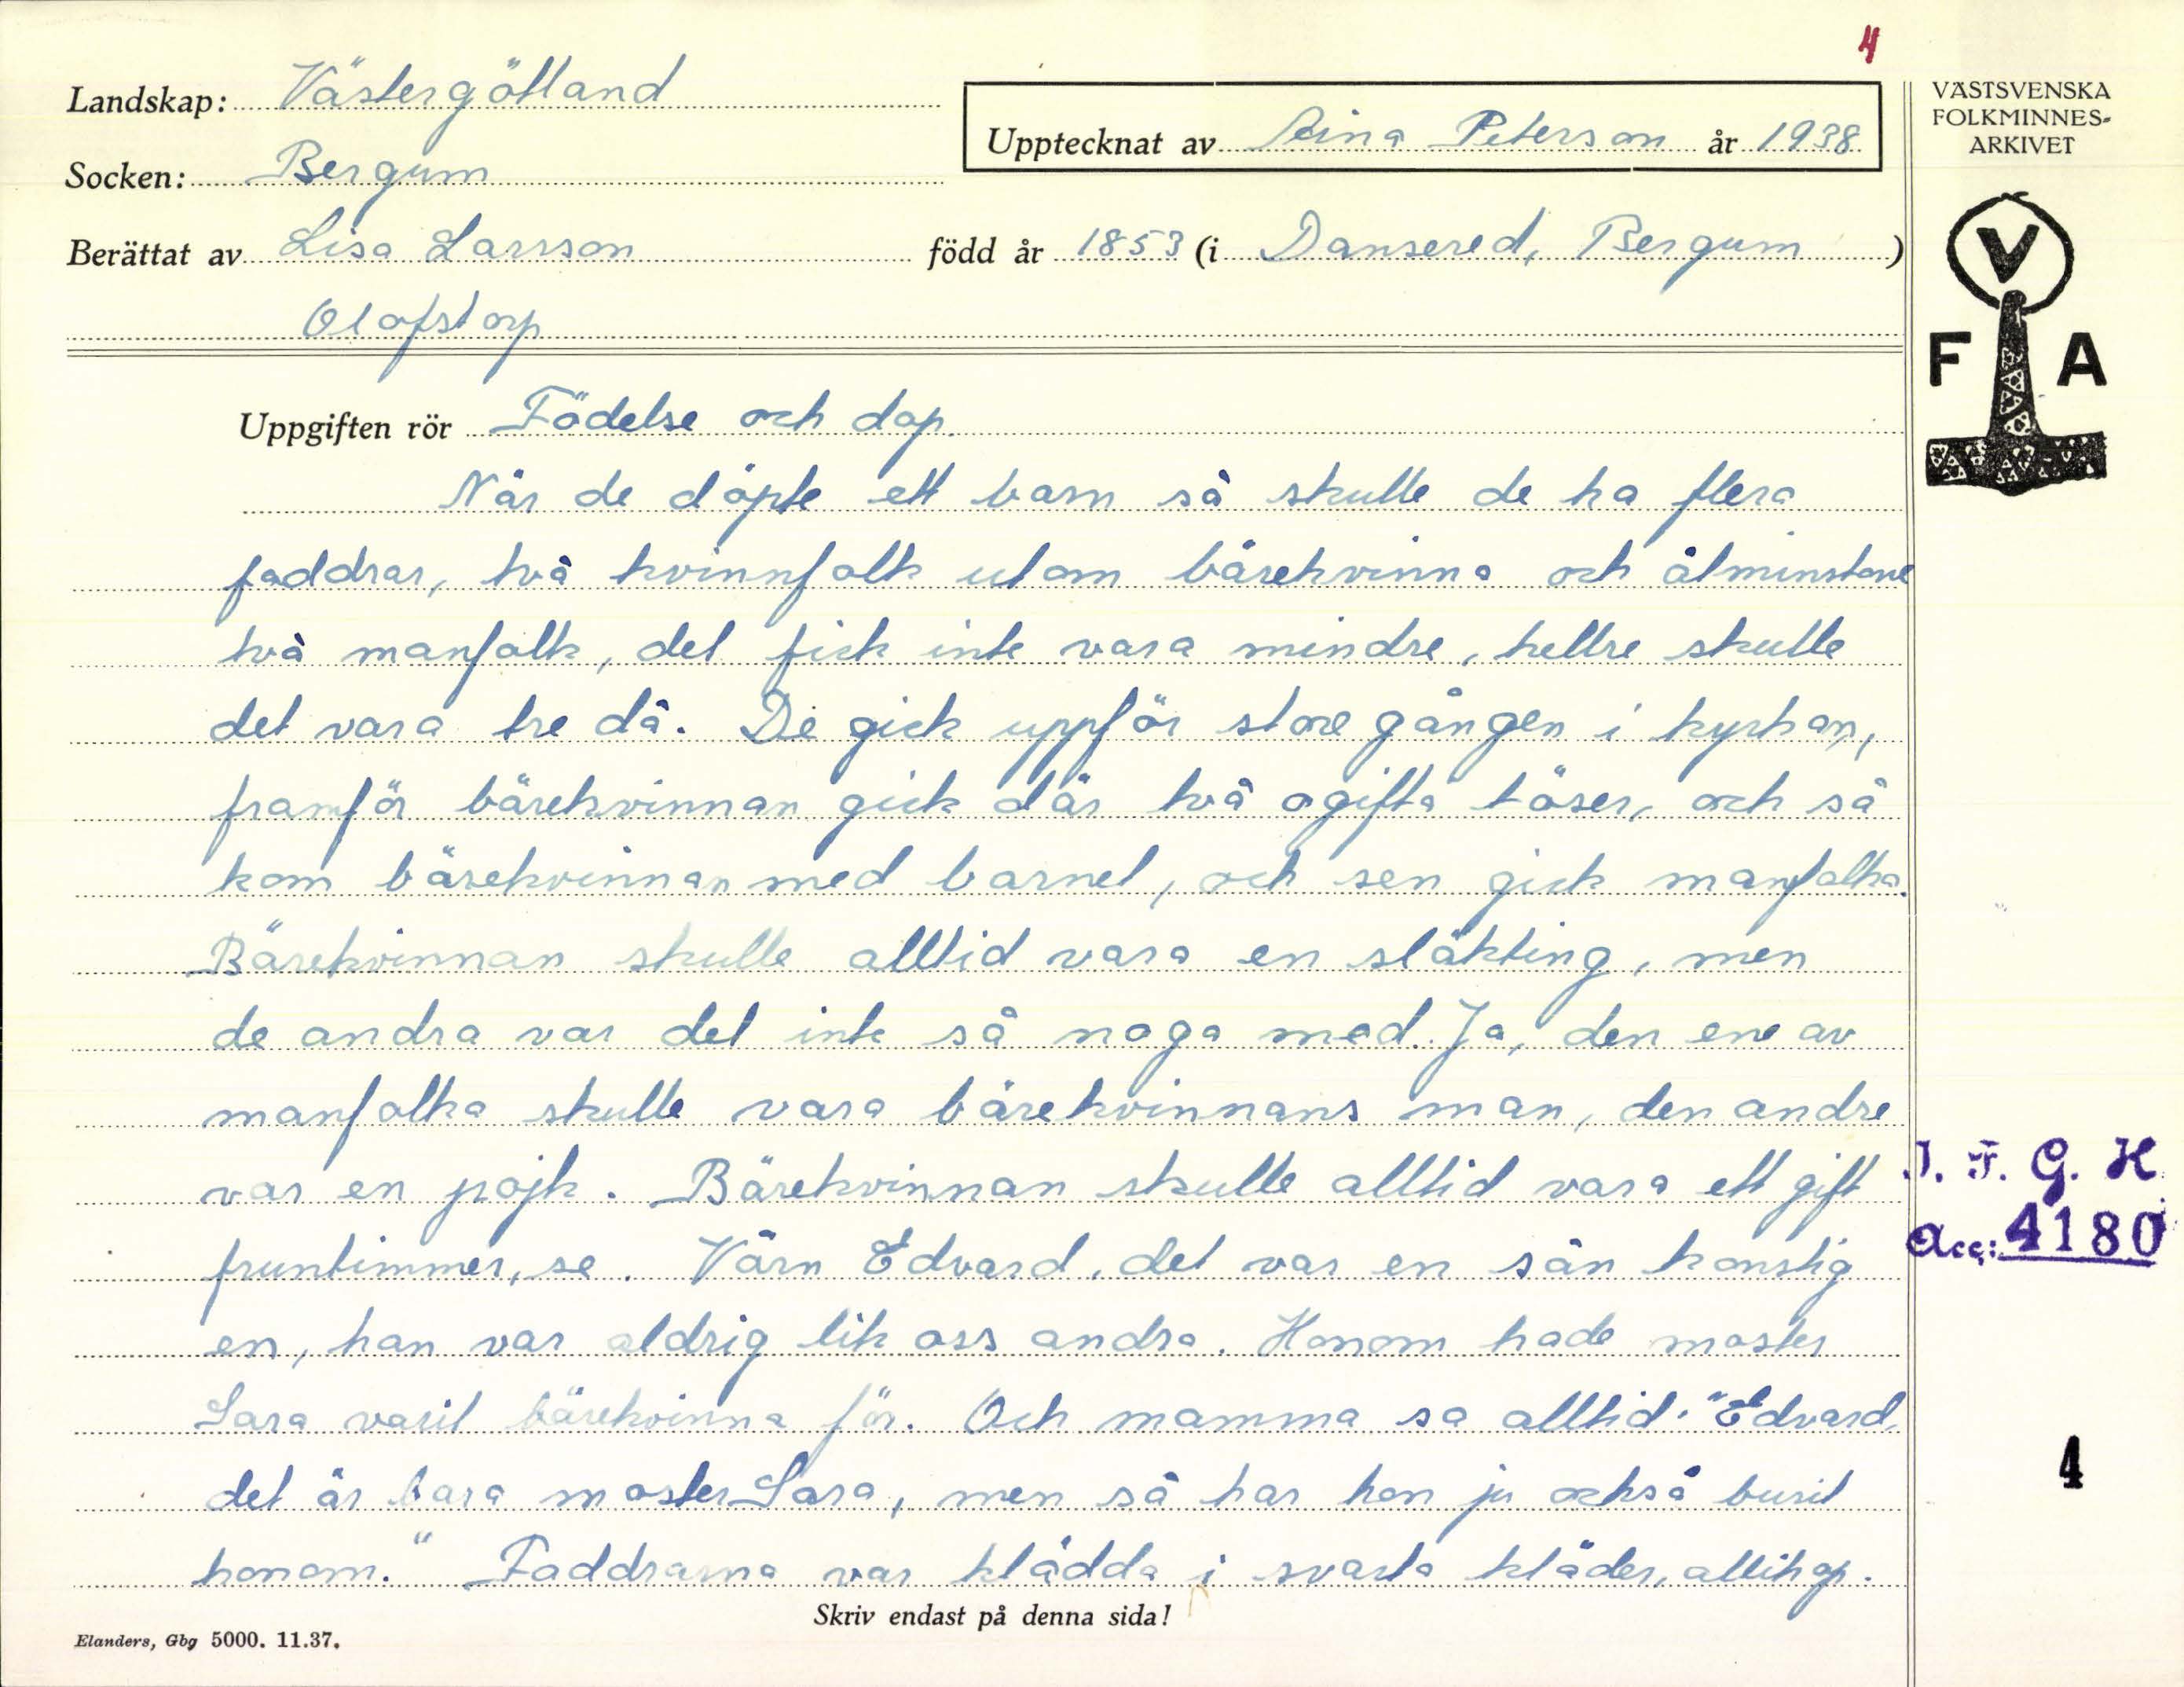 4
Landskap: Västergötland
Upptecknat av Aina Peterson år 1938
VÄSTSVENSKA
FOLKMINNES-
ARKIVET
Socken: Bergum
Berättat av Lisa Larsson född år 1853 (i Dansered, Bergum)
Olofstorp
V
F A
Uppgiften rör Födelse och dop.
När de döpte ett barn så skulle de ha flera
faddrar, två kvinnfolk utom bärekvinna och åtminstone
två manfolk, det fick inte vara mindre, hellre skulle
det vara tre då. De gick uppför store gången i kyrkan,
framför bärekvinnan gick där två ogifta töser, och så
kom bärekvinnan med barnet, och sen gick manfolka.
Bärekvinnan skulle alltid vara en släkting, men
de andra var det inte så noga med. Ja, den ene av
manfolka skulle vara bärekvinnans man, den andre
var en pojk. Bärekvinnan skulle alltid vara ett gift
fruntimmer, se. Vårn Edvard, det var en sån konstig
en, han var aldrig lik oss andra. Honom hade moster
Sara varit bärekvinna för. Och mamma sa alltid: "Edvard,
det är bara moster Sara, men så har hon ju också burit
honom." Faddrarna var klädda i svarta kläder, allihop.
I. F. G. H.
Acc: 4180
4
Skriv endast på denna sida!
Elanders, Gbg 5000. 11.37.